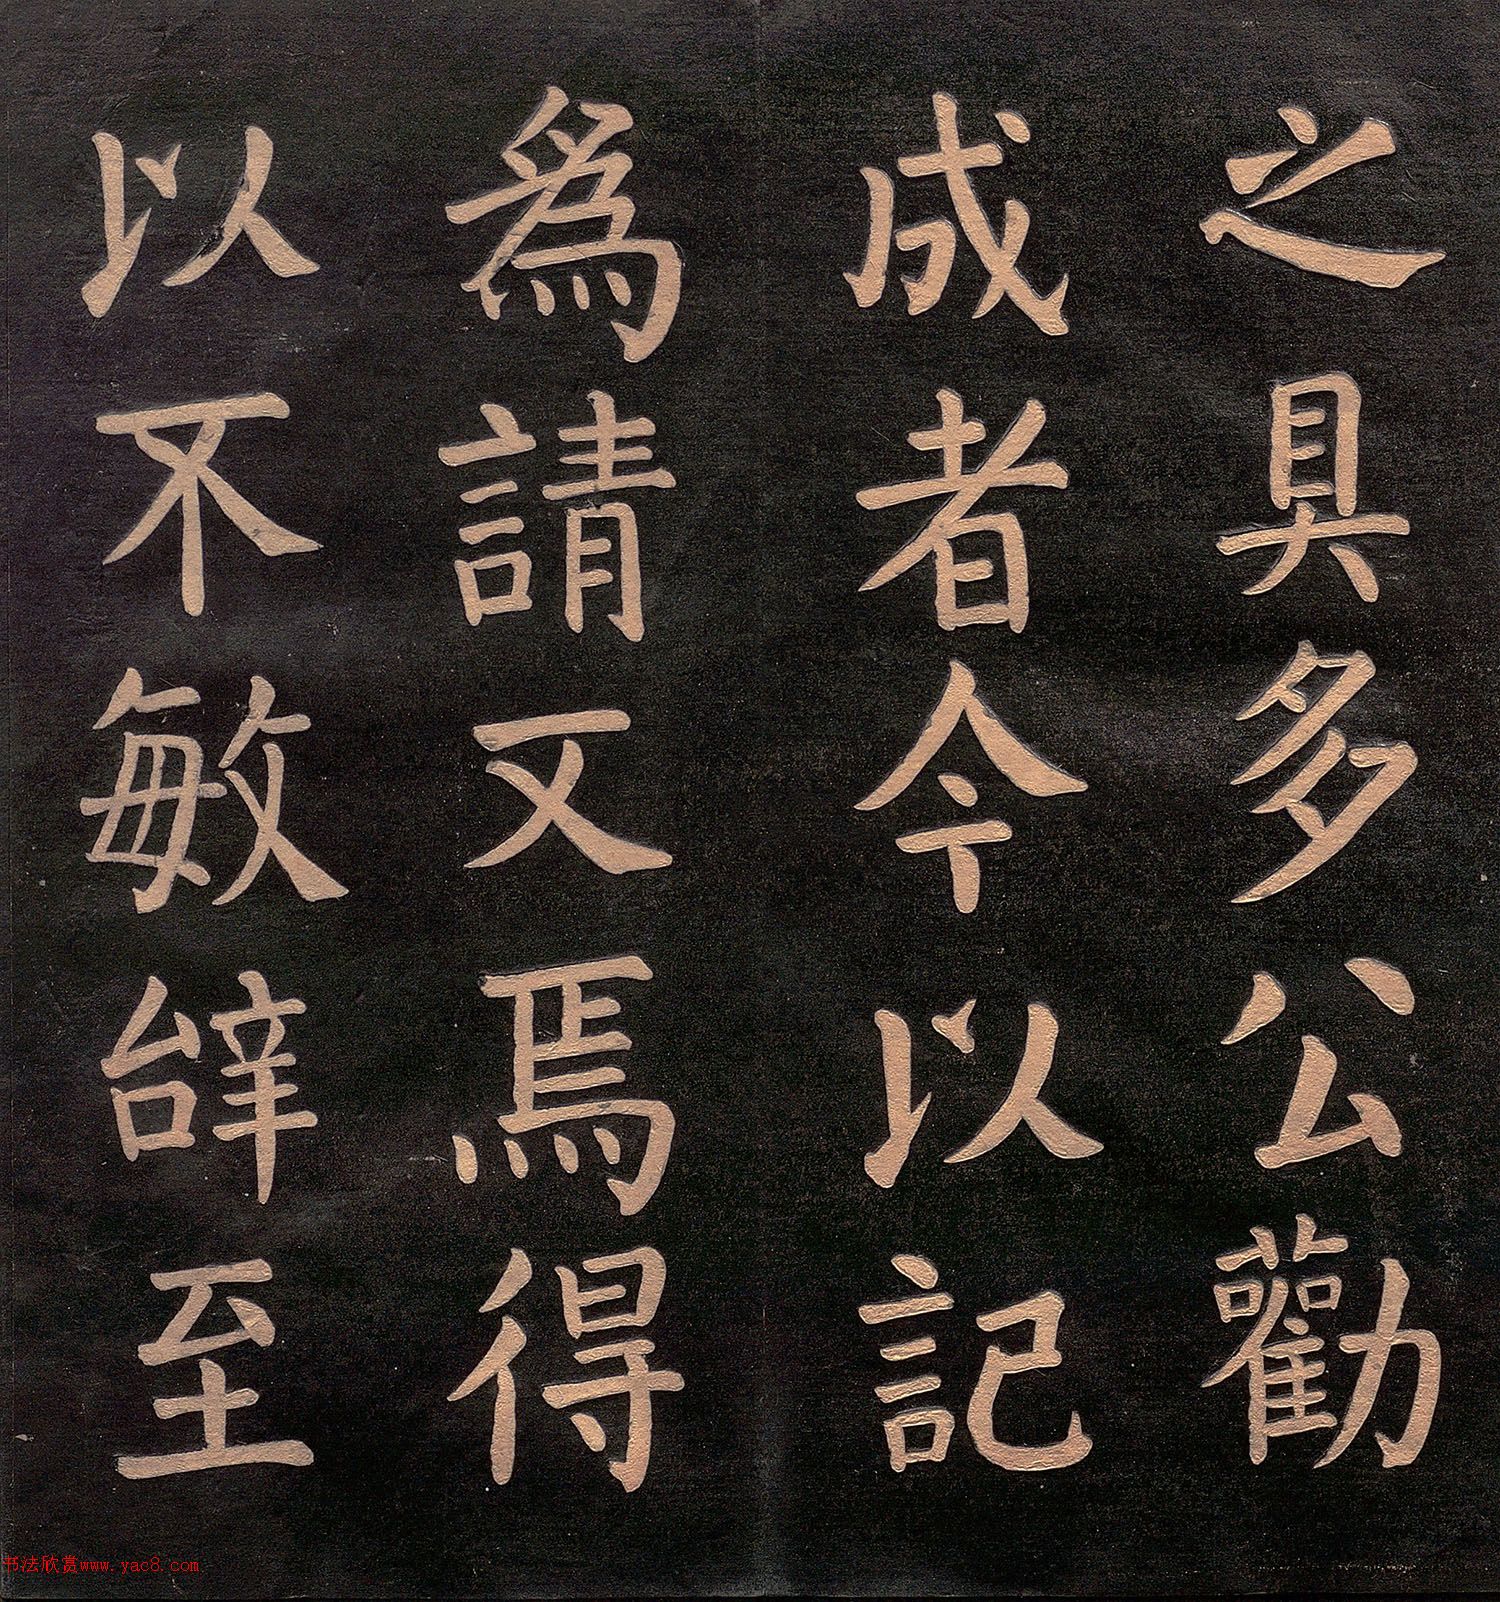 之具多公勸
成者今以記
爲請又焉得
以不敏辭至
书法欣赏www.yac8.com